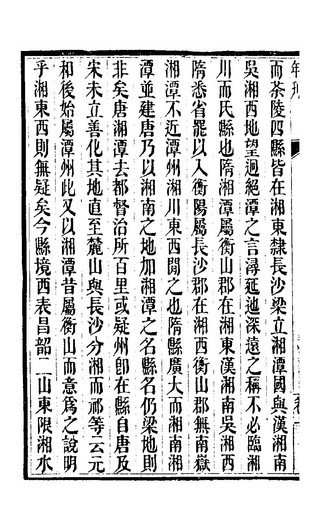 而茶陵四縣皆在湘東隸長沙梁立湘潭國與漢湘南
吳湘西地望過絕潭之言潯延迤深遠之稱不必臨湘
川而氏縣也隋湘潭屬衡山郡在湘東漢湘南吳湘西
隋悉省罷以入衡陽屬長沙郡在湘西衡山郡無南嶽
湘潭不近潭州湘川東西閒之也隋縣廣大而湘南湘
潭並建唐乃以湘南之地加湘潭之名縣名仍梁地則
非矣唐湘潭去都督治所百里或疑州卽在縣自唐及
宋未立善化其地直至麓山與長沙分湘而祁等云元
和後始屬潭州此又以湘潭昔屬衡山而意爲之說明
乎湘東西則無疑矣今縣境西表昌韶二山東限湘水